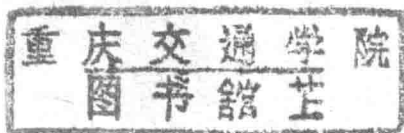 重庆交通学院
图书馆